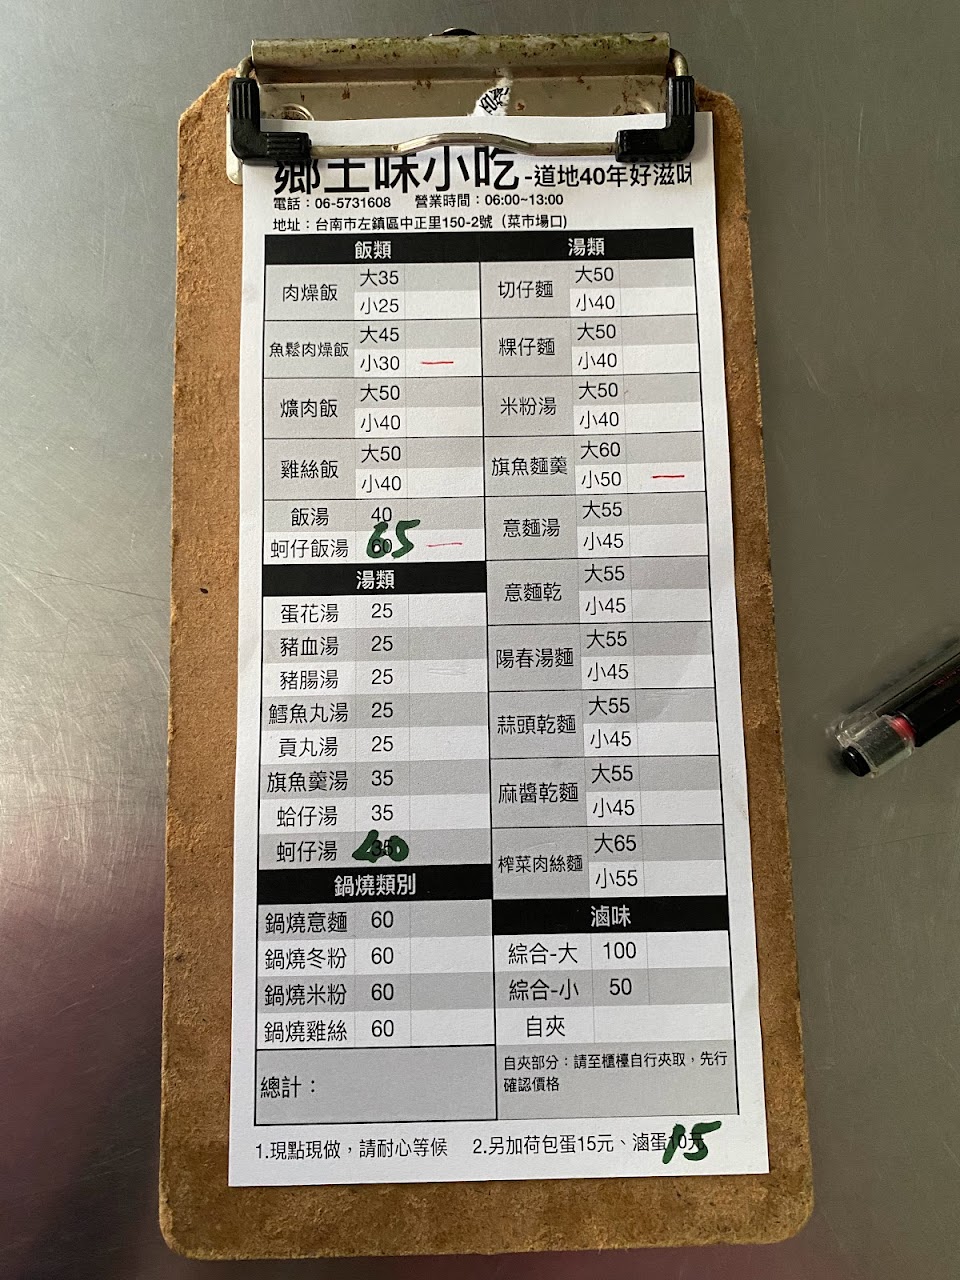 鄉土味小吃-道地40年好滋味
電話：06-5731608 營業時間：06:00~13:00
地址：台南市左鎮區中正里150-2號（菜市場口）
飯類
肉燥飯 大35
小25
魚鬆肉燥飯 大45
小30 一
爌肉飯 大50
小40
雞絲飯 大50
小40
飯湯 40
蚵仔飯湯 60 65 一
湯類
蛋花湯 25
豬血湯 25
豬腸湯 25
鱈魚丸湯 25
貢丸湯 25
旗魚羹湯 35
蛤仔湯 35
蚵仔湯 35 40
鍋燒類別
鍋燒意麵 60
鍋燒冬粉 60
鍋燒米粉 60
鍋燒雞絲 60
總計：
湯類
切仔麵 大50
小40
粿仔麵 大50
小40
米粉湯 大50
小40
旗魚麵羹 大60
小50 一
意麵湯 大55
小45
意麵乾 大55
小45
陽春湯麵 大55
小45
蒜頭乾麵 大55
小45
麻醬乾麵 大55
小45
榨菜肉絲麵 大65
小55
滷味
綜合-大 100
綜合-小 50
自夾
自夾部分：請至櫃檯自行夾取，先行
確認價格
1.現點現做，請耐心等候 2.另加荷包蛋15元、滷蛋10元 15